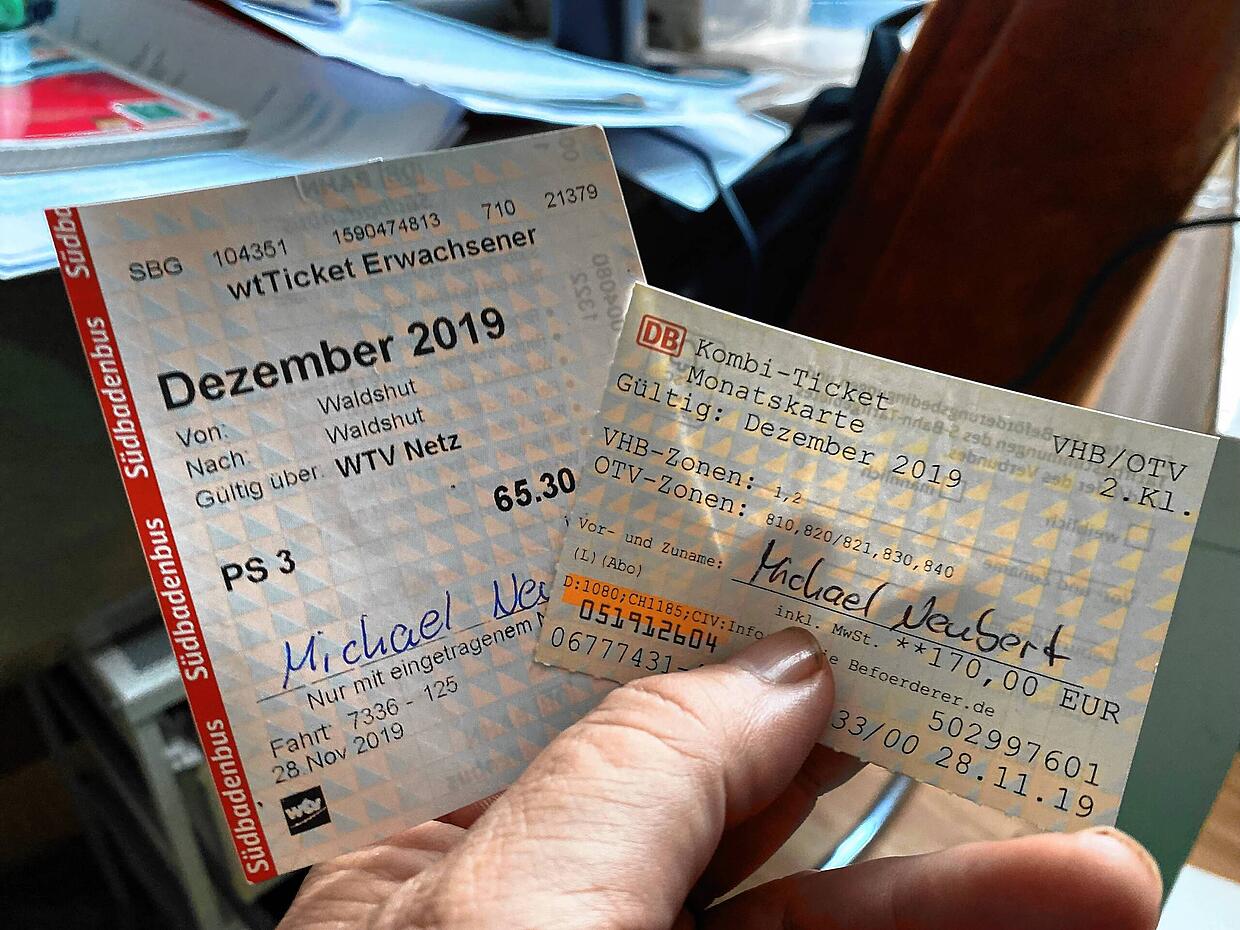 Südbadenbus
Südbadenbus
Südbadenbus
Südbadenbus
SBG 104351 1590474813 710 21379
wtTicket Erwachsener
Dezember 2019
Von: Waldshut
Nach: Waldshut
Gültig über: WTV Netz
65.30
PS 3
Michael
Nur mit eingetragenem
Fahrt 7336 - 125
28.Nov 2019
wtv
DB Kombi-Ticket
Monatskarte VHB/OTV
Gültig: Dezember 2019 2.Kl.
VHB-Zonen: 1,2
OTV-Zonen: 810,820/821,830,840
Vor- und Zuname: Michael Neubert
(L)(Abo)
inkl. MwSt. **170,00 EUR
D:1080;CH1185;CIV:Info
Befoerderer.de
051912604 502997601
06777431- 33/00 28.11.19